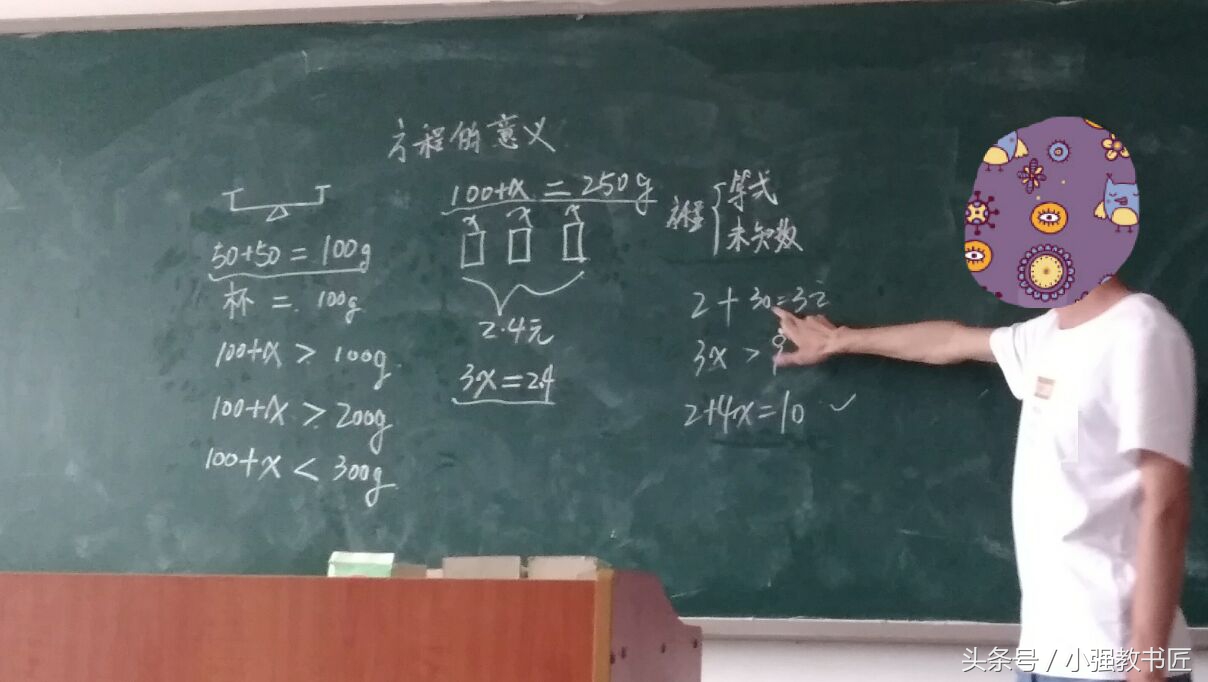 方程的意义
50+50=100g
杯=100g
100+x>100g
100+x>200g
100+x<300g
100+x=250g
x x x
2.4元
3x=2.4
方程{等式
未知数
2+30=32
3x>9
2+4x=10 ✓
头条号/小强教书匠